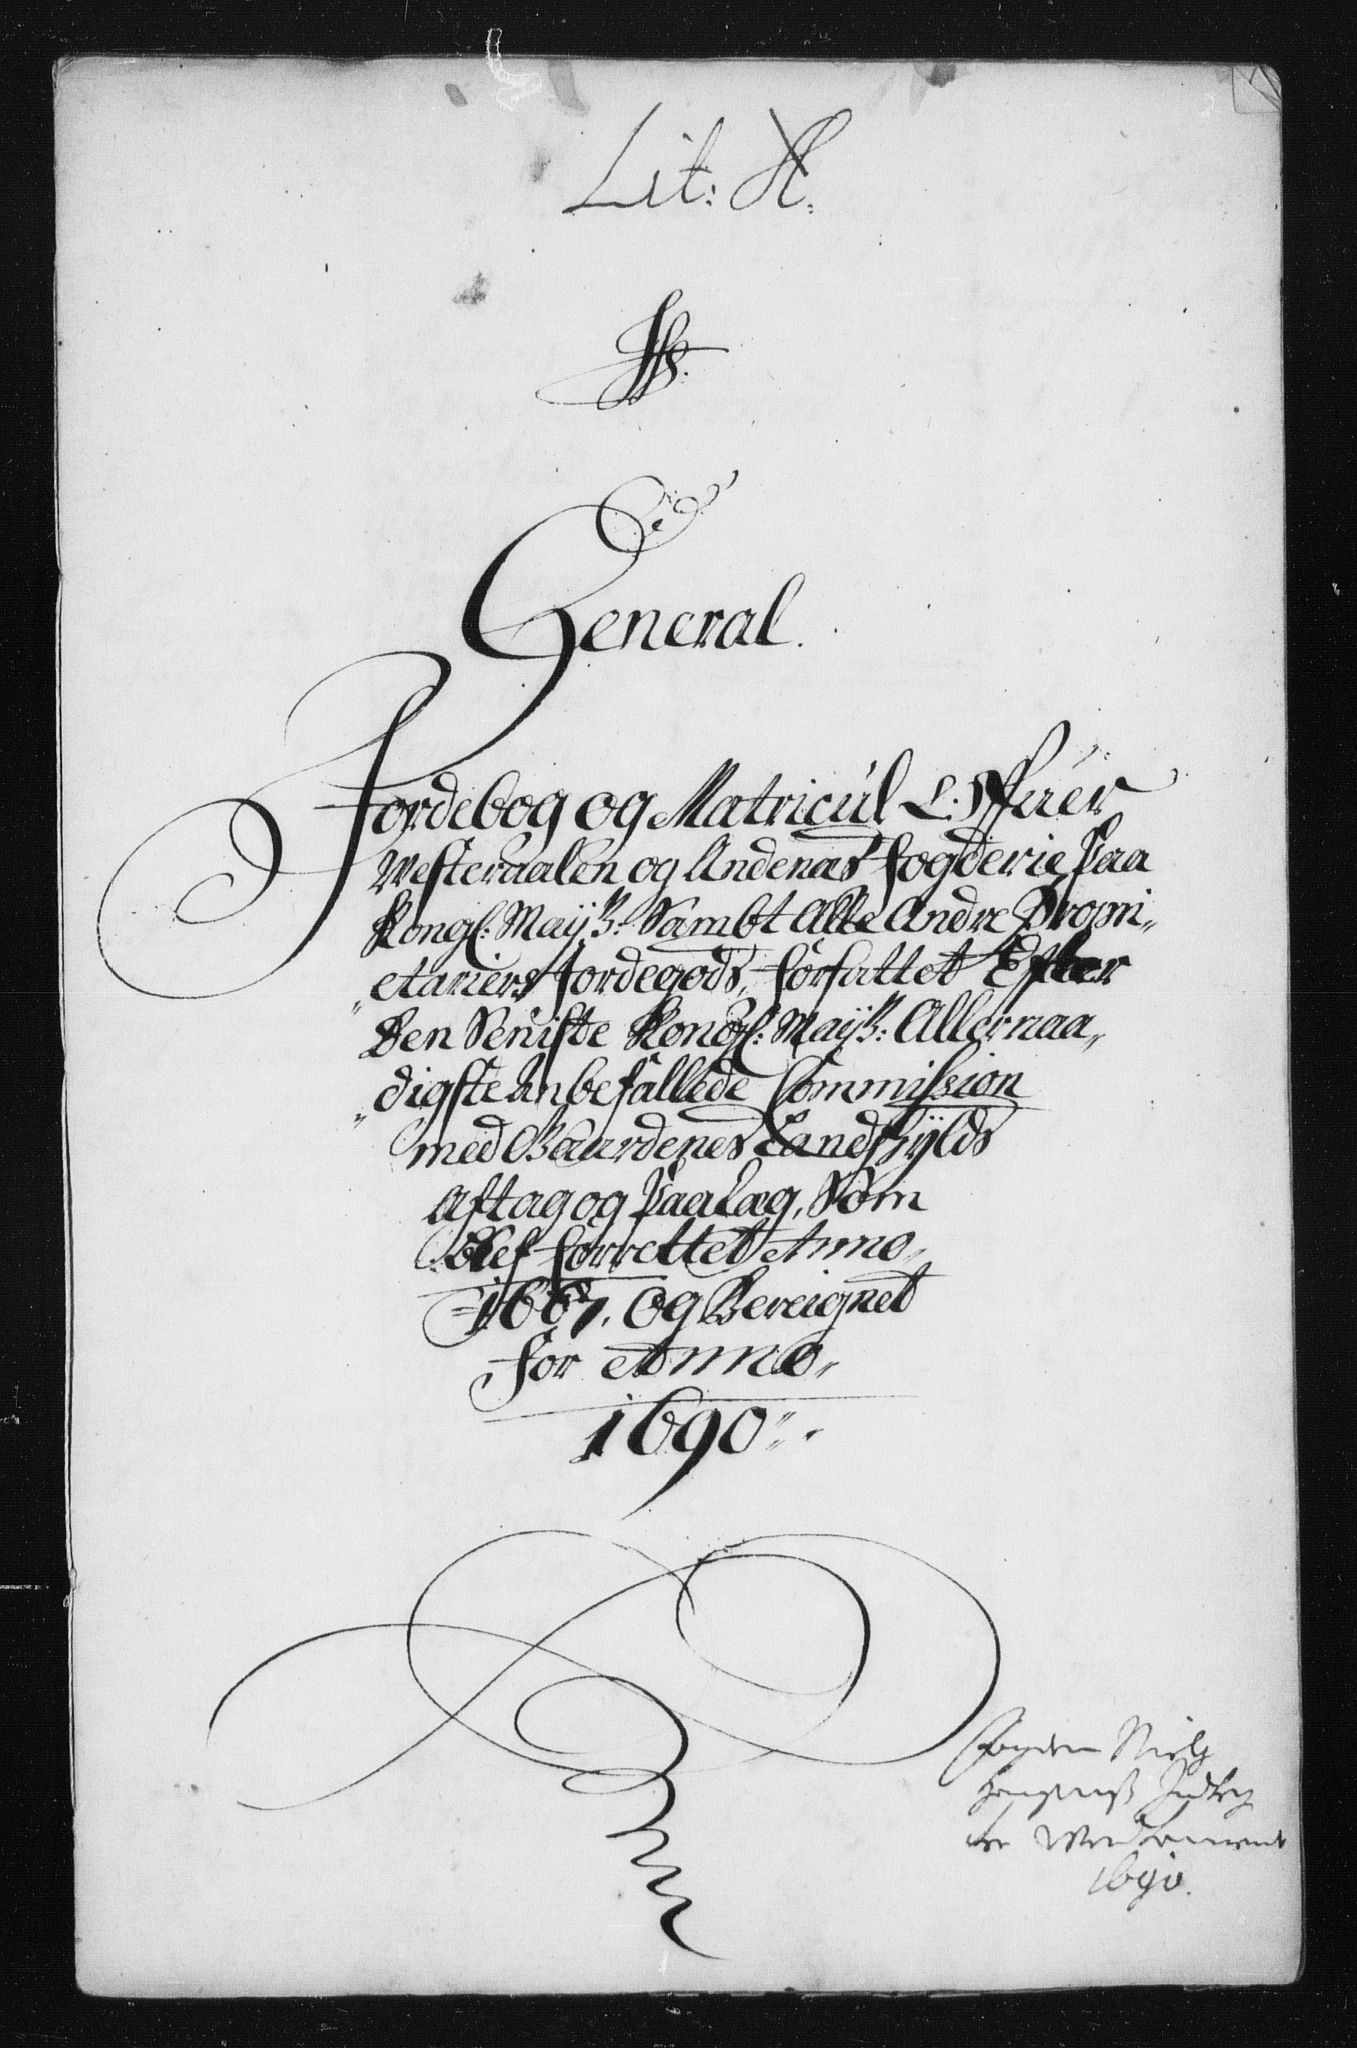 Lit: A.
General.
Jordebog og Matricul Offuer
Westeraalen og Andenæs fogderie Paa
Kongl: Maÿtz: Sambt Alle Andre Propri„
„etariers Jordegods, forfattet Efter
Den Seniste Kongl: Maÿtz: Allernaa„
„digste Anbefallede Commission
med Gaardenes Landskÿlds
Aftag og Paalæg, Som
blef forrettet Anno
1667. og Bereignet
for Anno
1690
1690.